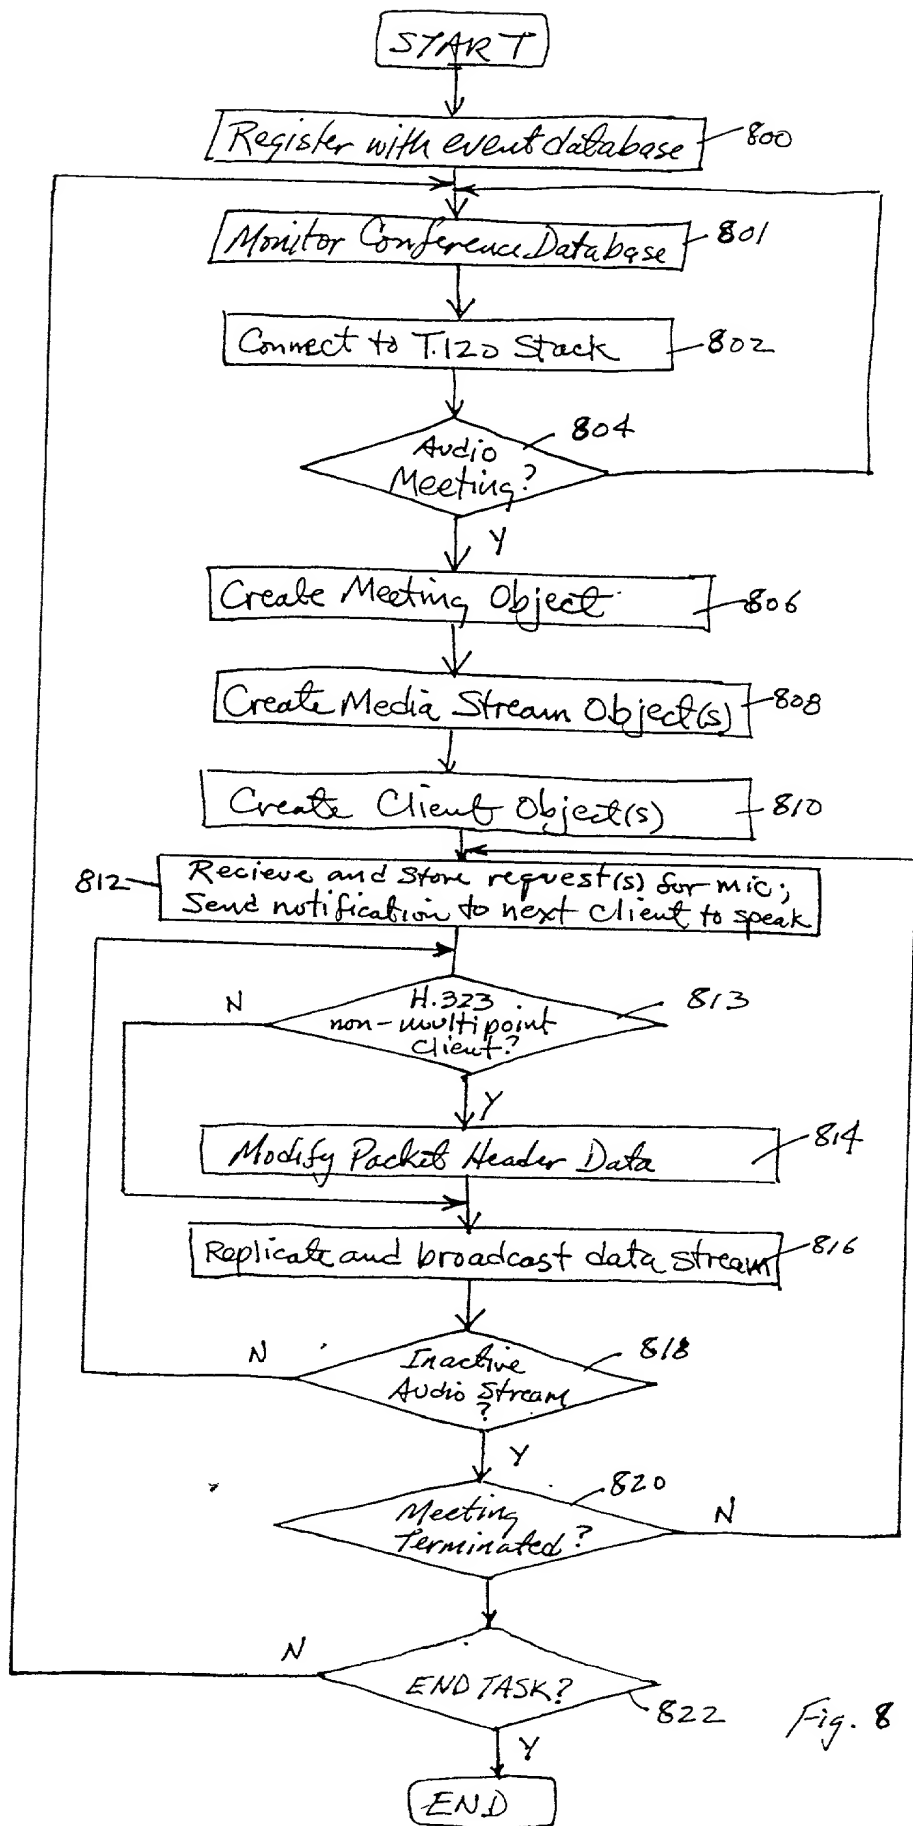 START
Register with event database
800
Monitor Conference Database
801
Connect to T.120 Stack
802
804
Audio
Meeting?
Y
Create Meeting Object
806
Create Media Stream Object(s)
808
Create Client Object(s)
810
812
Recieve and store request(s) for mic;
Send notification to next client to speak
N
H.323
non-multipoint
client?
813
Y
Modify Packet Header Data
814
Replicate and broadcast data stream
816
N
Inactive
Audio Stream
?
818
Y
820
Meeting
Terminated?
N
N
END TASK?
822
Fig. 8
Y
END